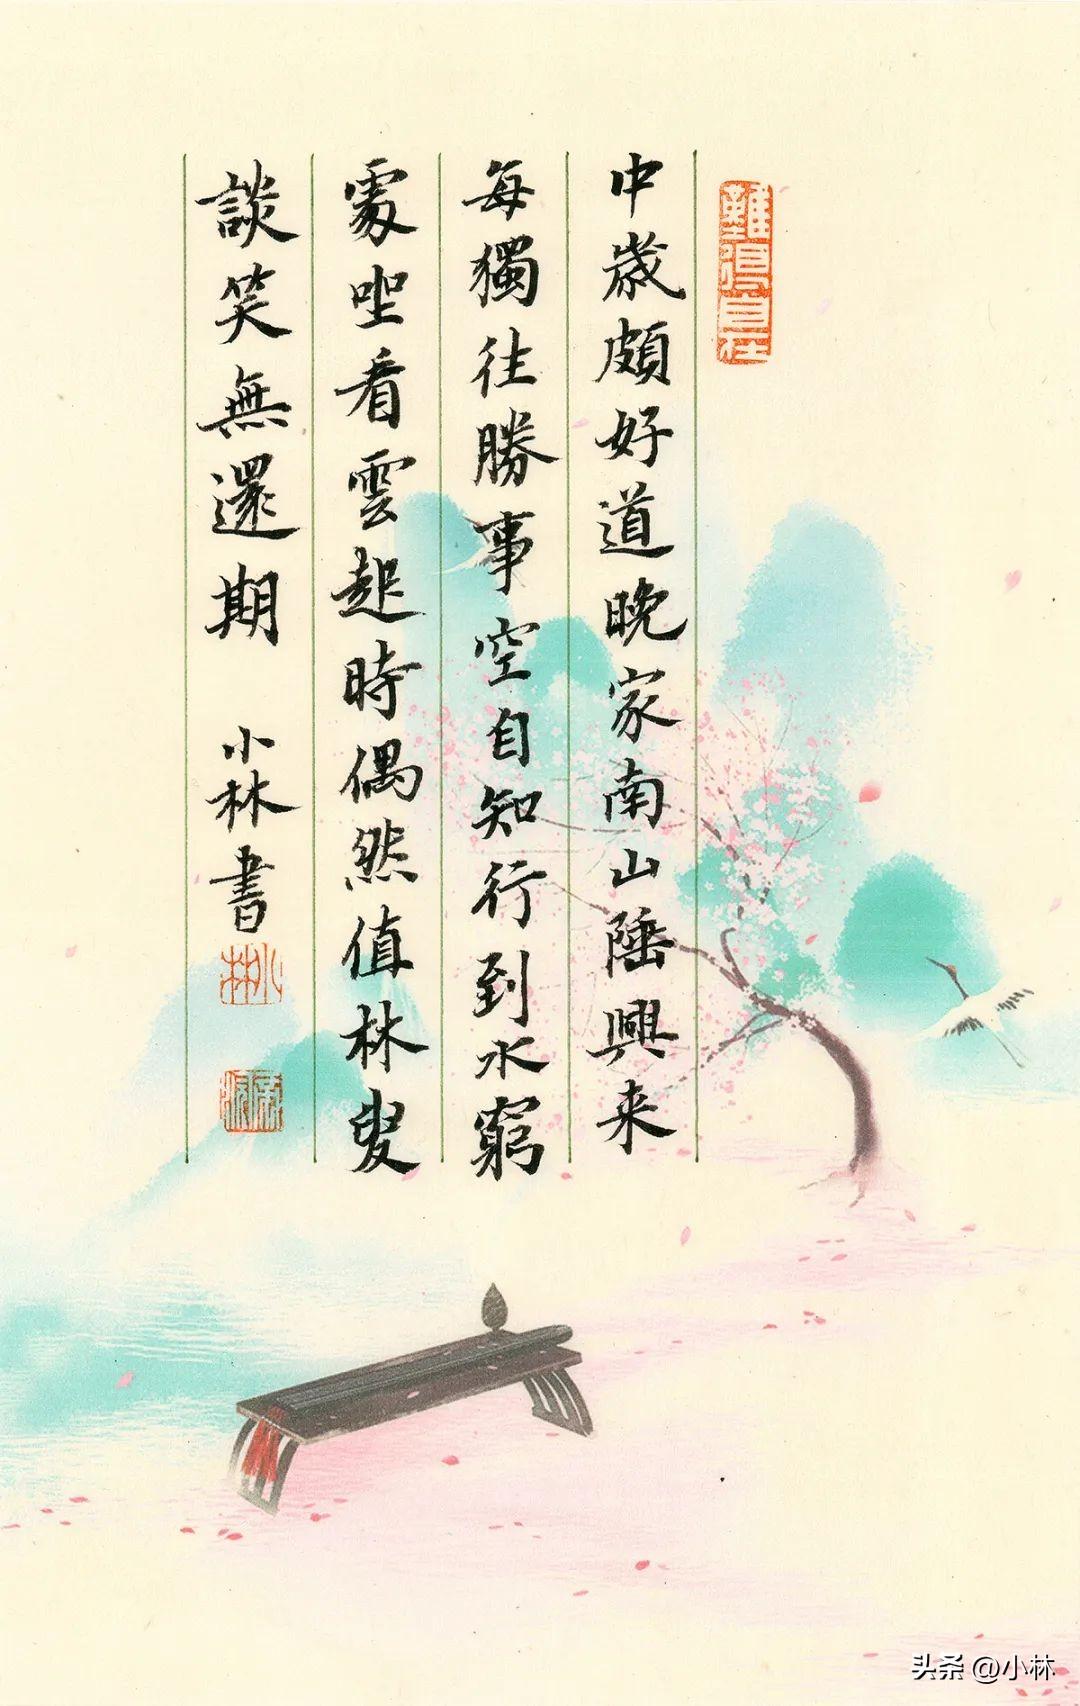 中歲頗好道晚家南山陲興来
每獨往勝事空自知行到水窮
處坐看雲起時偶然值林叟
談笑無還期 小林書
難得自在
小林
头条 @小林